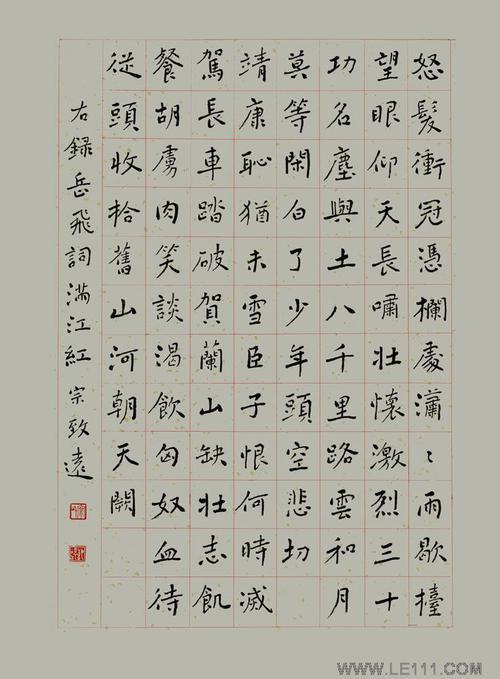 怒髮衝冠憑欄處瀟〻雨歇擡
望眼仰天長嘯壯懷激烈三十
功名塵與土八千里路雲和月
莫等閑白了少年頭空悲切
靖康恥猶未雪臣子恨何時滅
駕長車踏破賀蘭山缺壯志飢
餐胡虜肉笑談渴飲匈奴血待
從頭收拾舊山河朝天闕
右錄岳飛詞滿江紅 宗致遠
WWW.LE111.COM